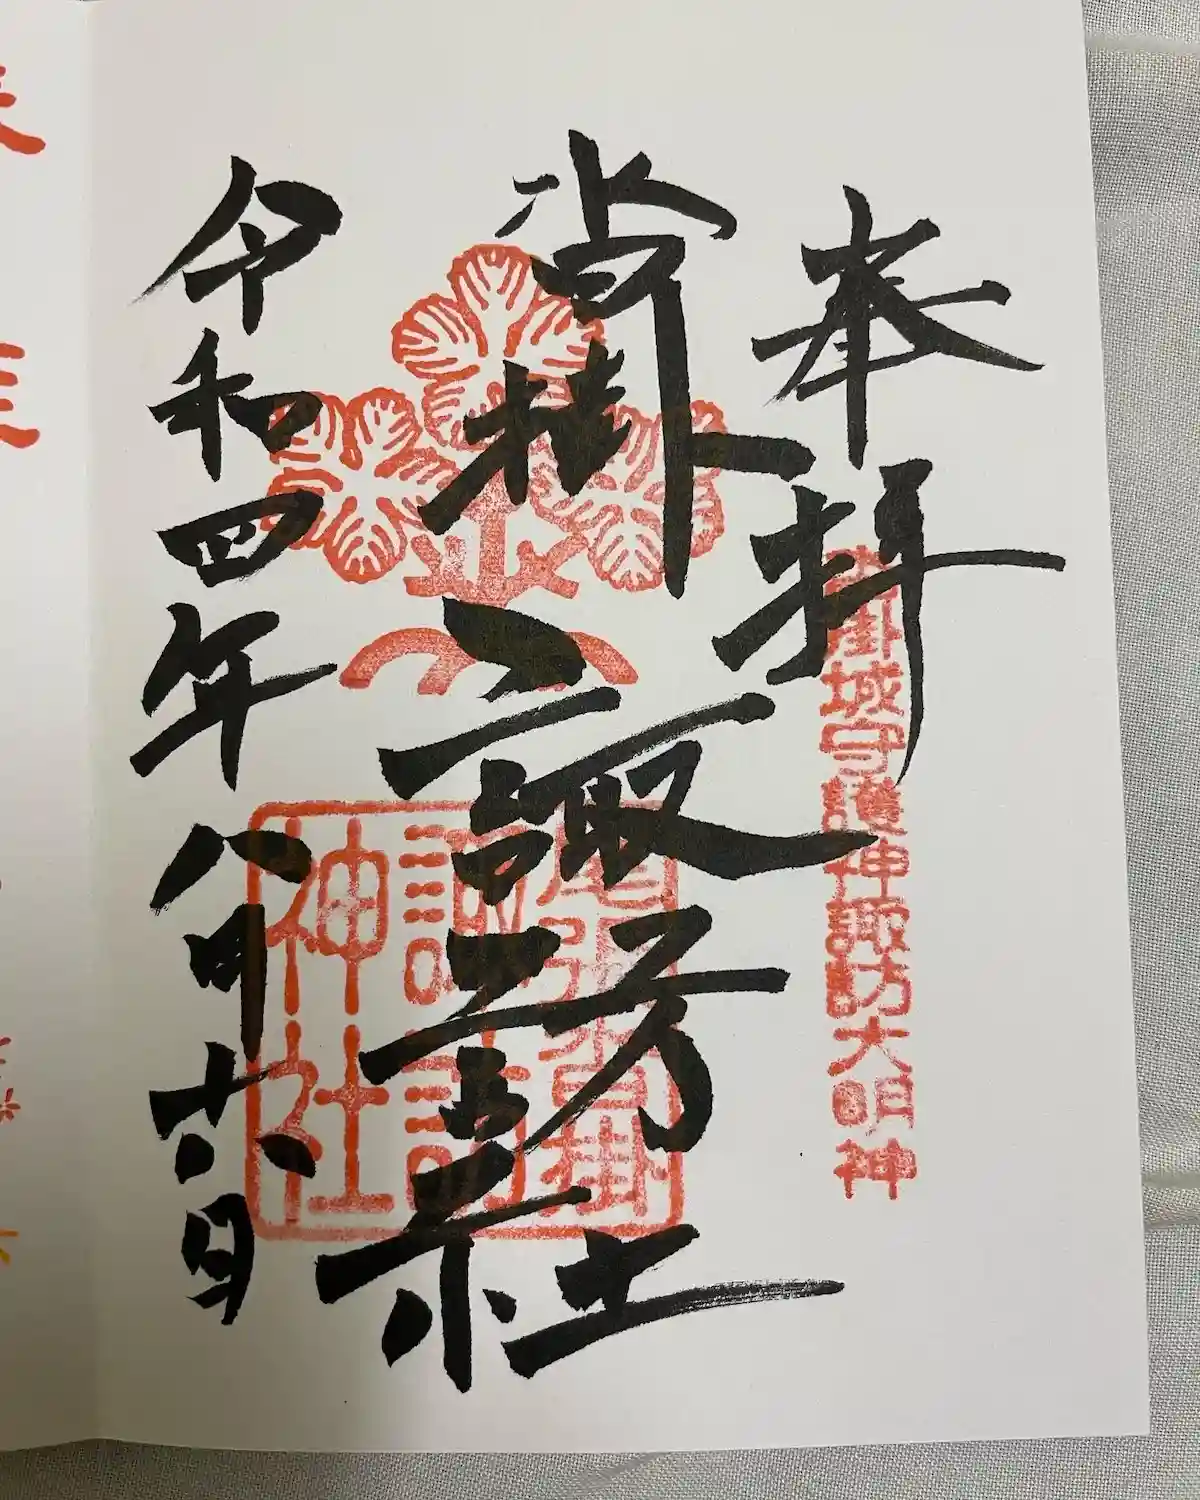 奉拝
沓掛城守護神諏訪大明神
沓掛
諏訪社
尾張沓掛
諏訪
神社
令和四年八月六日